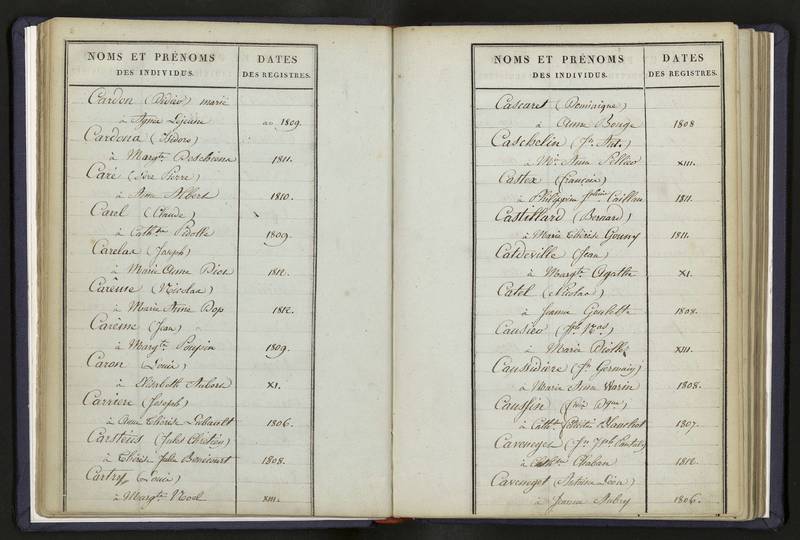 NOMS ET PRÉNOMS DATES
DES INDIVIDUS. DES REGISTRES.
Cardon (Didier) marié
à Agnès Lejeune an 1809.
Cardona (Isidore)
à Margte. 1811.
Caré (Pierre)
à Anna Albert 1810.
Carel (Claude)
à Cathte. Pidolle 1809.
Carelan (Joseph)
à Marie Anne Dion 1812.
Careuse (Nicolas)
à Marie Anne Dop 1812.
Carème (Jean)
à Margte. Poupin 1809.
Caron (Louis)
à Elisabeth XI.
Carriere (Joseph)
à Anne Thérèse 1806.
Carstens (Jules Christian)
à Thérèse Julie 1808.
Cartry (Louis)
à Margte. Noel XIII.
NOMS ET PRÉNOMS DATES
DES INDIVIDUS. DES REGISTRES.
Cascaret (Dominique)
à Anne Bouge 1808
Caschelin (Jn. Ant.)
à Me. Anna Pellico XIII.
Castex (françois)
à Philippine Caillau 1811.
Castillard (Bernard)
à Marie Thérèse Gouny 1811.
Catdeville (Jean)
à Margte. Agathe XI.
Catel (Nicolas)
à Jeanne 1808.
Causier
à Marie Diotte XIII.
Caussidière (Jn. Germain)
à Marie Anna Warin 1808.
Caussin
à Cathte. Blanchot 1807.
Cavenegee
à Cathte. Chaban 1812.
Cavenegot (Antoine Léon)
à Jeanne Aubry 1806.